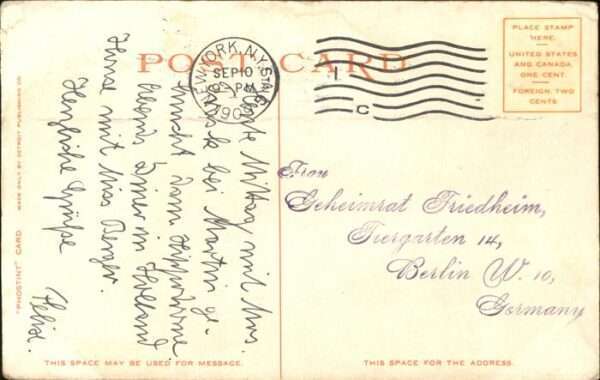 POST CARD
PLACE STAMP
HERE.
UNITED STATES
AND CANADA
ONE CENT.
FOREIGN, TWO
CENTS
NEW YORK, N.Y. STA.
SEP 10
PM
190
1
C
Mittag mit Mrs.
bei Martin ge-
dann Hippodrome
Abend Diner in Holland
House mit Miss Berger.
Herzliche Grüße
Frau
Geheimrat Friedheim,
Tiergarten 14,
Berlin W. 10,
Germany
"PHOSTINT" CARD
MADE ONLY BY DETROIT PUBLISHING CO.
THIS SPACE MAY BE USED FOR MESSAGE.
THIS SPACE FOR THE ADDRESS.